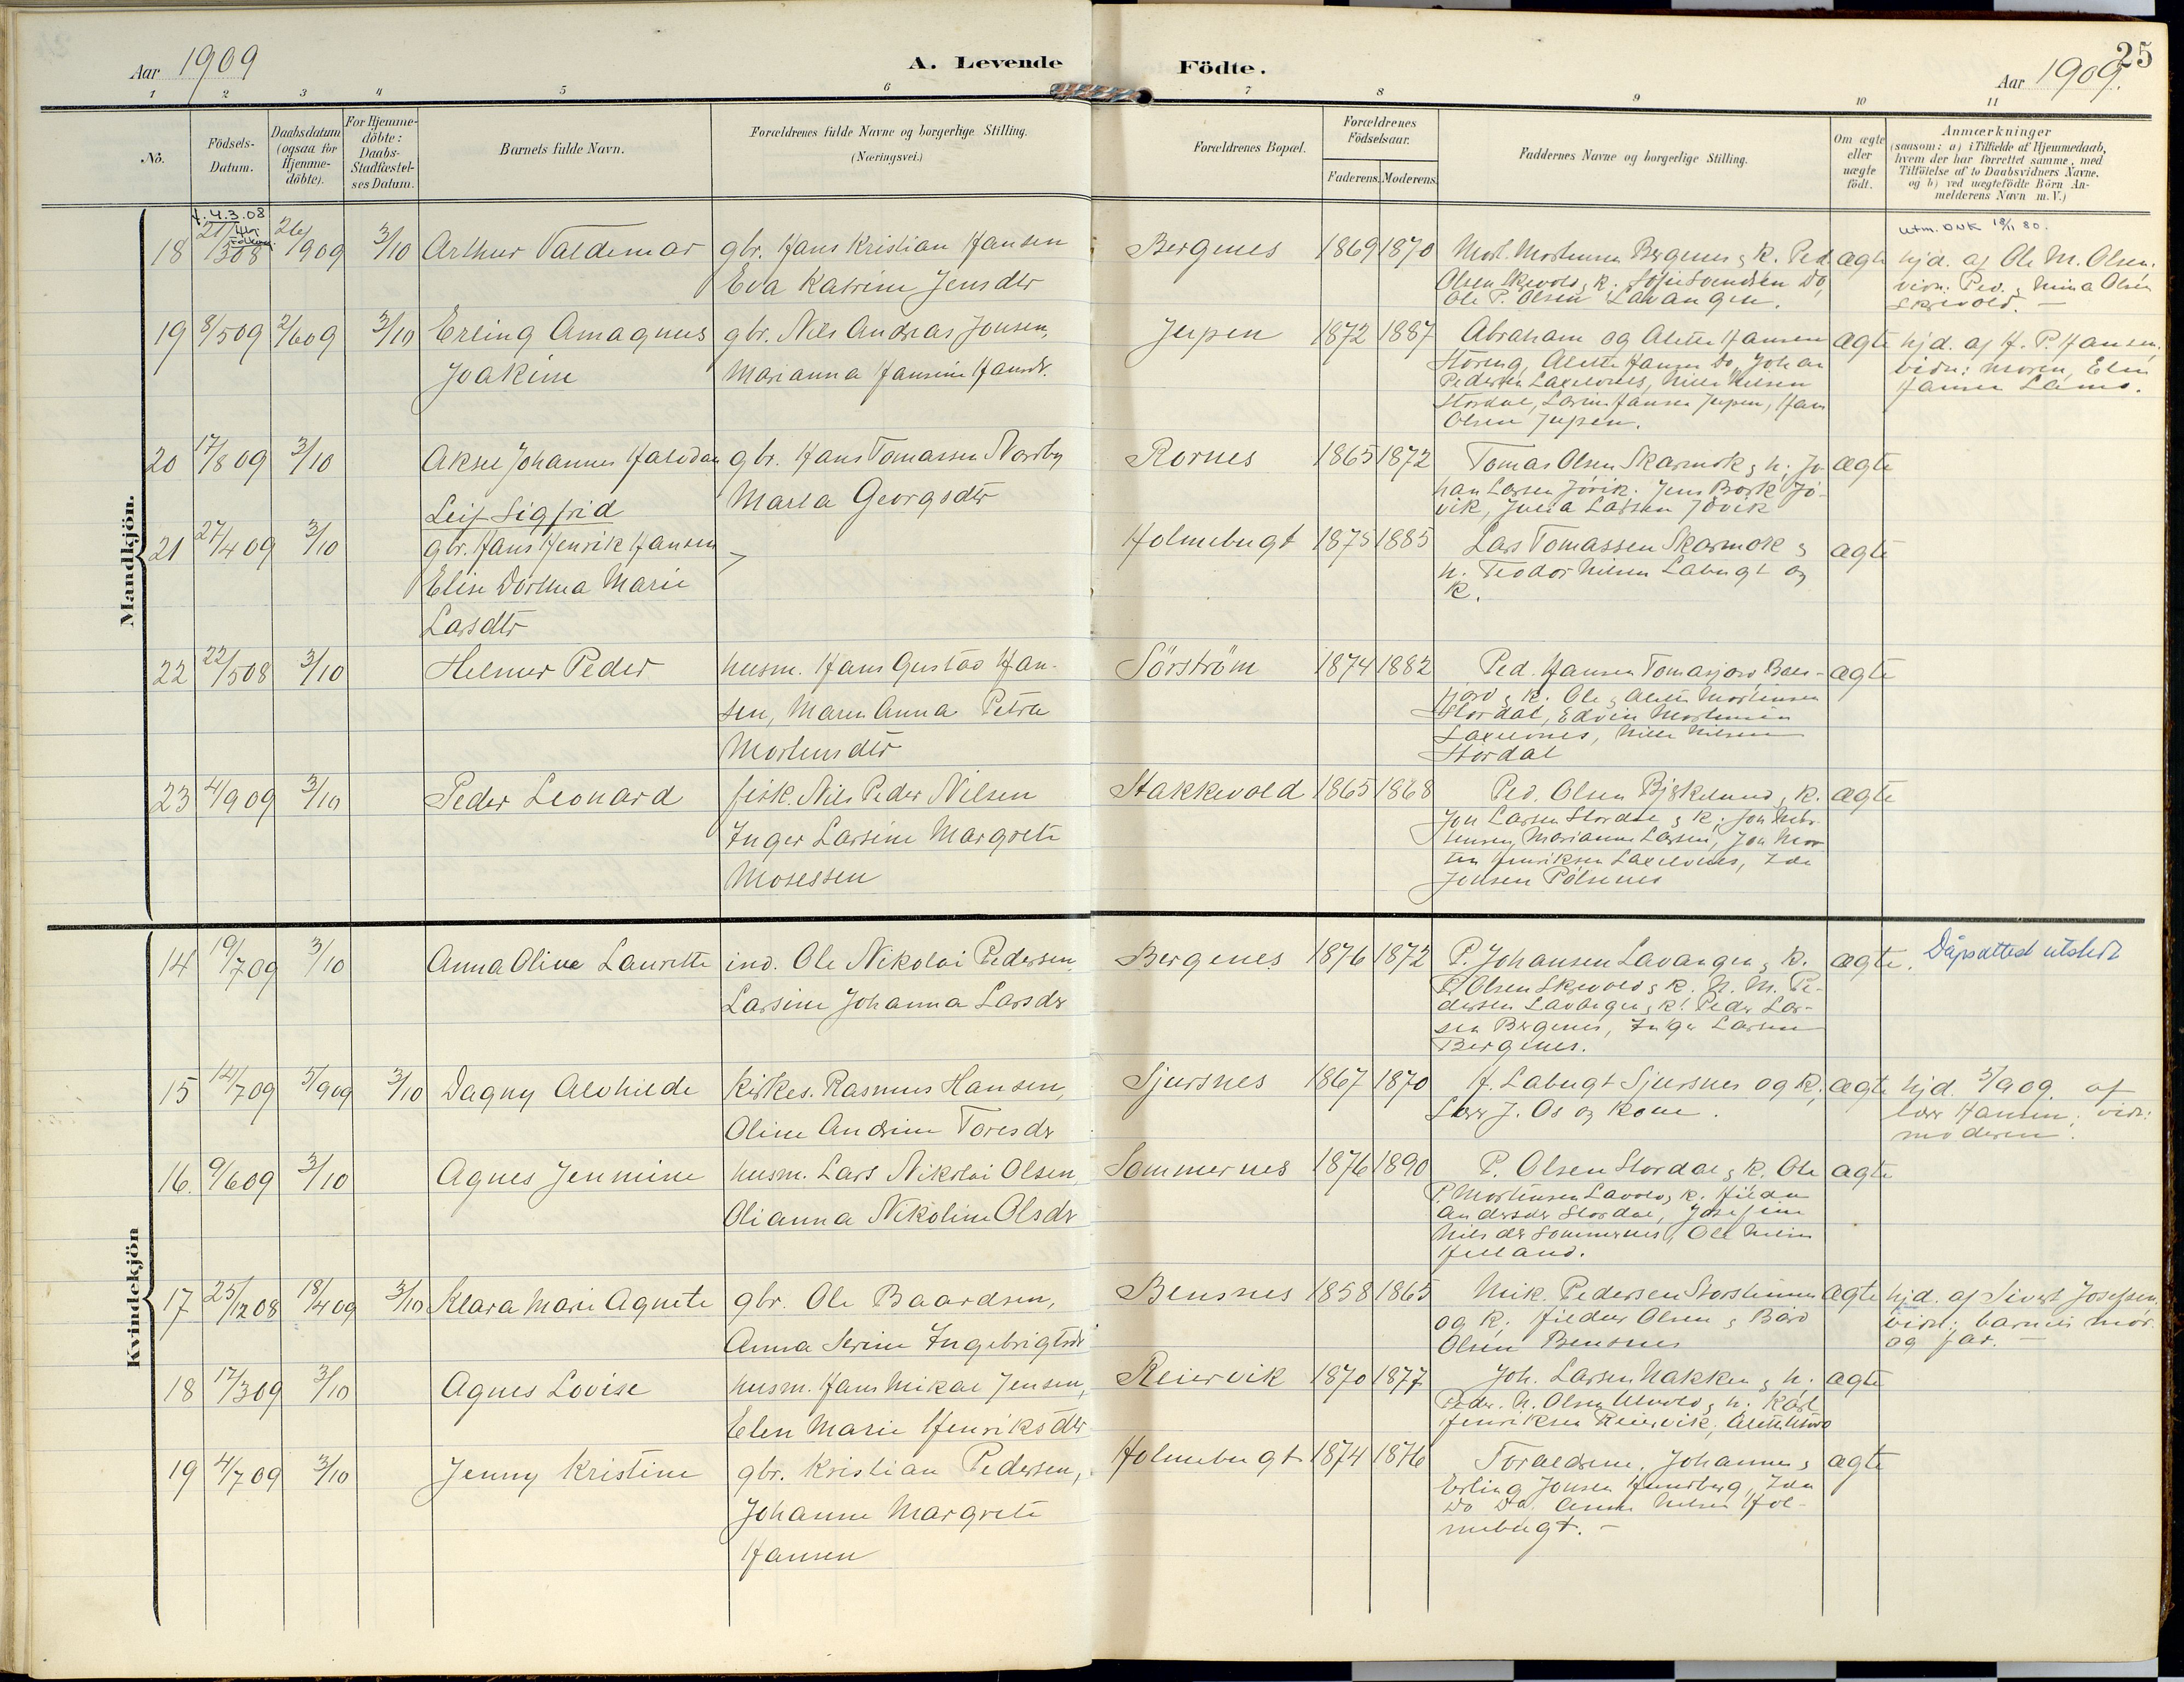 Aar 1909
A. Levende
Födte.
25
Aar 1909.
1 2 3 4 5 6 7 8 9 10 11
No.
Födsels-
Datum.
Daabsdatum
(ogsaa for
Hjemme-
döbte).
For Hjemme-
döbte:
Daabs-
Stadfæstel-
ses Datum.
Barnets fulde Navn.
Forældrenes fulde Navne og borgerlige Stilling.
(Næringsvei.)
Forældrenes Bopæl.
Forældrenes
Födselsaar.
Faderens. Moderens.
Faddernes Navne og borgerlige Stilling.
Om ægte
eller
uægte
födt.
Anmærkninger
(saasom: a) i Tilfælde af Hjemmedaab,
hvem der har forrettet samme, med
Tilföielse af to Daabsvidners Navne.
og b) ved uægtefödte Börn An-
melderens Navn m. V.)
Mandkjön.
f. 4.3.08
18 21/308 26/1909 3/10 Arthur Valdemar gbr. Hans Kristian Hansen
Eva Katrine Jensdtr
Bergenes 1869 1870 Mort. Mortensen Bergenes & K. Ped
Olsen Skrevold & K. Sofie Svendsen Do,
Ole P. Olsen Lavangen.
ægte
Utm. DNK 18/11 80.
hjd. af Ole M. Olsen.
vidn: Ped. & Nina Olsen
Skrevold. —
19 8/509 2/609 3/10 Erling Amagnus gbr. Nils Andreas Jonsen,
Joakim Marianna Hansine Hansdr.
Jepen 1872 1887 Abraham og Alette Hansen
Storeng, Alette Hansen Do, Johan
Pedersen Laxelvnes, Nille Nilsen
Stordal, Larine Hansen Jepen, Hans
Olsen Jepen.
ægte hjd. af H. P. Hansen,
vidn: moren, Elen
Hansen
20 17/809 3/10 Aksel Johannes Halvdan gbr. Hans Tomassen Nordby
Marta Georgsdtr
Rornes 1865 1872 Tomas Olsen Skarmok & h. Jo
han Larsen Jövik. Jens Bark Jö-
vik, Julia Larsen Jövik
ægte
21 27/409 3/10 Leif Sigfrid
gbr. Hans Henrik Hansen
Elise Dorthea Marie
Larsdtr
Holmebugt 1875 1885 Lars Tomassen Skarmok &
h. Teodor Nilsen Labugt og
K.
ægte
22 22/508 3/10 Helmer Peder husm. Hans Gustav Han-
sen, Maren Anna Petra
Mortensdtr
Sörström 1874 1882 Ped. Hansen Tomasjord, Bals-
fjord & K. Ole & Alette Mortensen
Stordal, Edvin Mortensen
Laxelvnes, Nille Nilsen
Stordal
ægte
23 4/909 3/10 Peder Leonard fisk. Nils Peder Nilsen
Inger Larsine Margrete
Mosessen
Stakkevold 1865 1868 Ped. Olsen Bjrkelund & K.
Jon Larsen Stordal & K. Jon
Marianne Larsen, Jon Mor
ten Henriksen Laxelvnes, Ida
Jensen Pölsenes
ægte
Kvindekjön
14 19/709 3/10 Anna Olive Laurette ind. Ole Nikolai Pedersen,
Larsine Johanna Larsdr
Bergenes 1876 1872 P. Johansen Lavangen & K.
P. Olsen Skrevold & K. N. M. Pe-
dersen Lavangen & K. Peder Lar-
sen Bergenes, Inger Larsen
Bergenes.
ægte. Dåpsattest utstedt
15 14/709 5/909 3/10 Dagny Alvhilde Kirkes. Rasmus Hansen,
Oline Andrine Toresdr
Sjursnes 1867 1870 H. Labugt Sjursnes og K.,
Lærer J. Os og Kone.
ægte hjd. 5/909. af
lærer Hansen, vidn:
moderen.
16. 9/609 3/10 Agnes Jenmine husm. Lars Nikolai Olsen,
Olianna Nikoline Olsdr
Sommernes 1876 1890 P. Olsen Stordal & K. Ole
P. Mortensen Lavold & K. Hilda
Andersdr Stordal, Josefine
Nilsdr Sommernes, Ole Nilsen
ægte
17 25/1208 18/409 3/10 Klara Marie Agnete gbr. Ole Baardsen,
Anna Serine Ingebrigtsdr
Bensnes 1858 1865 Mik. Pedersen Storsteinnes
og K. Olsen & Bård
Olsen Bensnes
ægte hjd. af Sivert Josefsen,
vidn: barnets mor
og far. —
18 17/309 3/10 Agnes Lovise husm. Hans Mikal Jensen,
Elen Marie Henriksdtr
Reiervik 1870 1877 Joh. Larsen Nakken & h.
Peder N. Olsen & h. Karl
Henriksen Reiervik,
ægte
19 4/709 3/10 Jenny Kristine gbr. Kristian Pedersen,
Johanne Margrete
Hansen
Holmebugt 1874 1876 Forældrene, Johannes &
Erling Jonsen Hundberg, Ida
Do Do. Anna Nilsen Hol-
mebugt. —
ægte